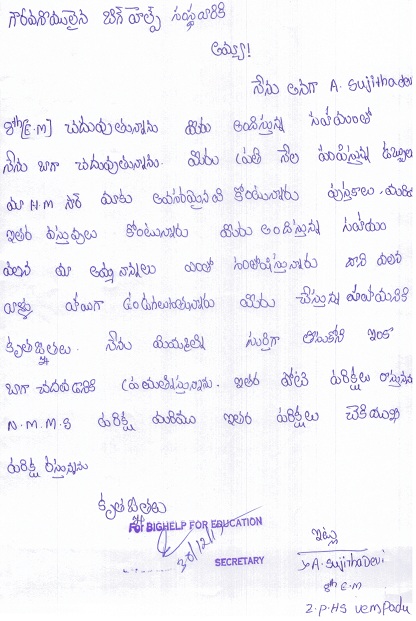 గౌరవనీయులైన బిగ్ హెల్ప్ సంస్థవారికి
అమ్మా!
నేను అనగా A. Sujithadevi
8th [E.M] చదువుతున్నాను మీరు అందిస్తున్న సహాయంతో
నేను బాగా చదువుతున్నాను. మీరు ప్రతీ నెల పంపిస్తున్న డబ్బులు
మా H.M సార్ మాకు అవసరమైనవి కొంటున్నారు పుస్తకాలు, మరియు
ఇతర వస్తువులు కొంటున్నారు మీరు అందిస్తున్న సహాయం
వలన మా అమ్మ నాన్నలు ఎంతో సంతోషిస్తున్నారు దాని వలన
వాళ్ళు హాయిగా ఉండగలుగుతున్నారు మీరు చేస్తున్న సహాయానికి
కృతజ్ఞతలు. నేను మిమ్మల్ని స్పూర్తిగా తీసుకోని ఇంకా
బాగా చదవడానికి ప్రయత్నిస్తున్నాను. ఇతర పోటీ పరీక్షలు రాస్తున్నాను
N.M.M.S పరీక్ష మరియు ఇతర పరీక్షలు
పరీక్ష రాస్తున్నాను
కృతజ్ఞతలు
For BIGHELP FOR EDUCATION
30/12/17
SECRETARY
ఇట్లు
A. Sujitha Devi
8th E.M
Z.P.HS Vempadu